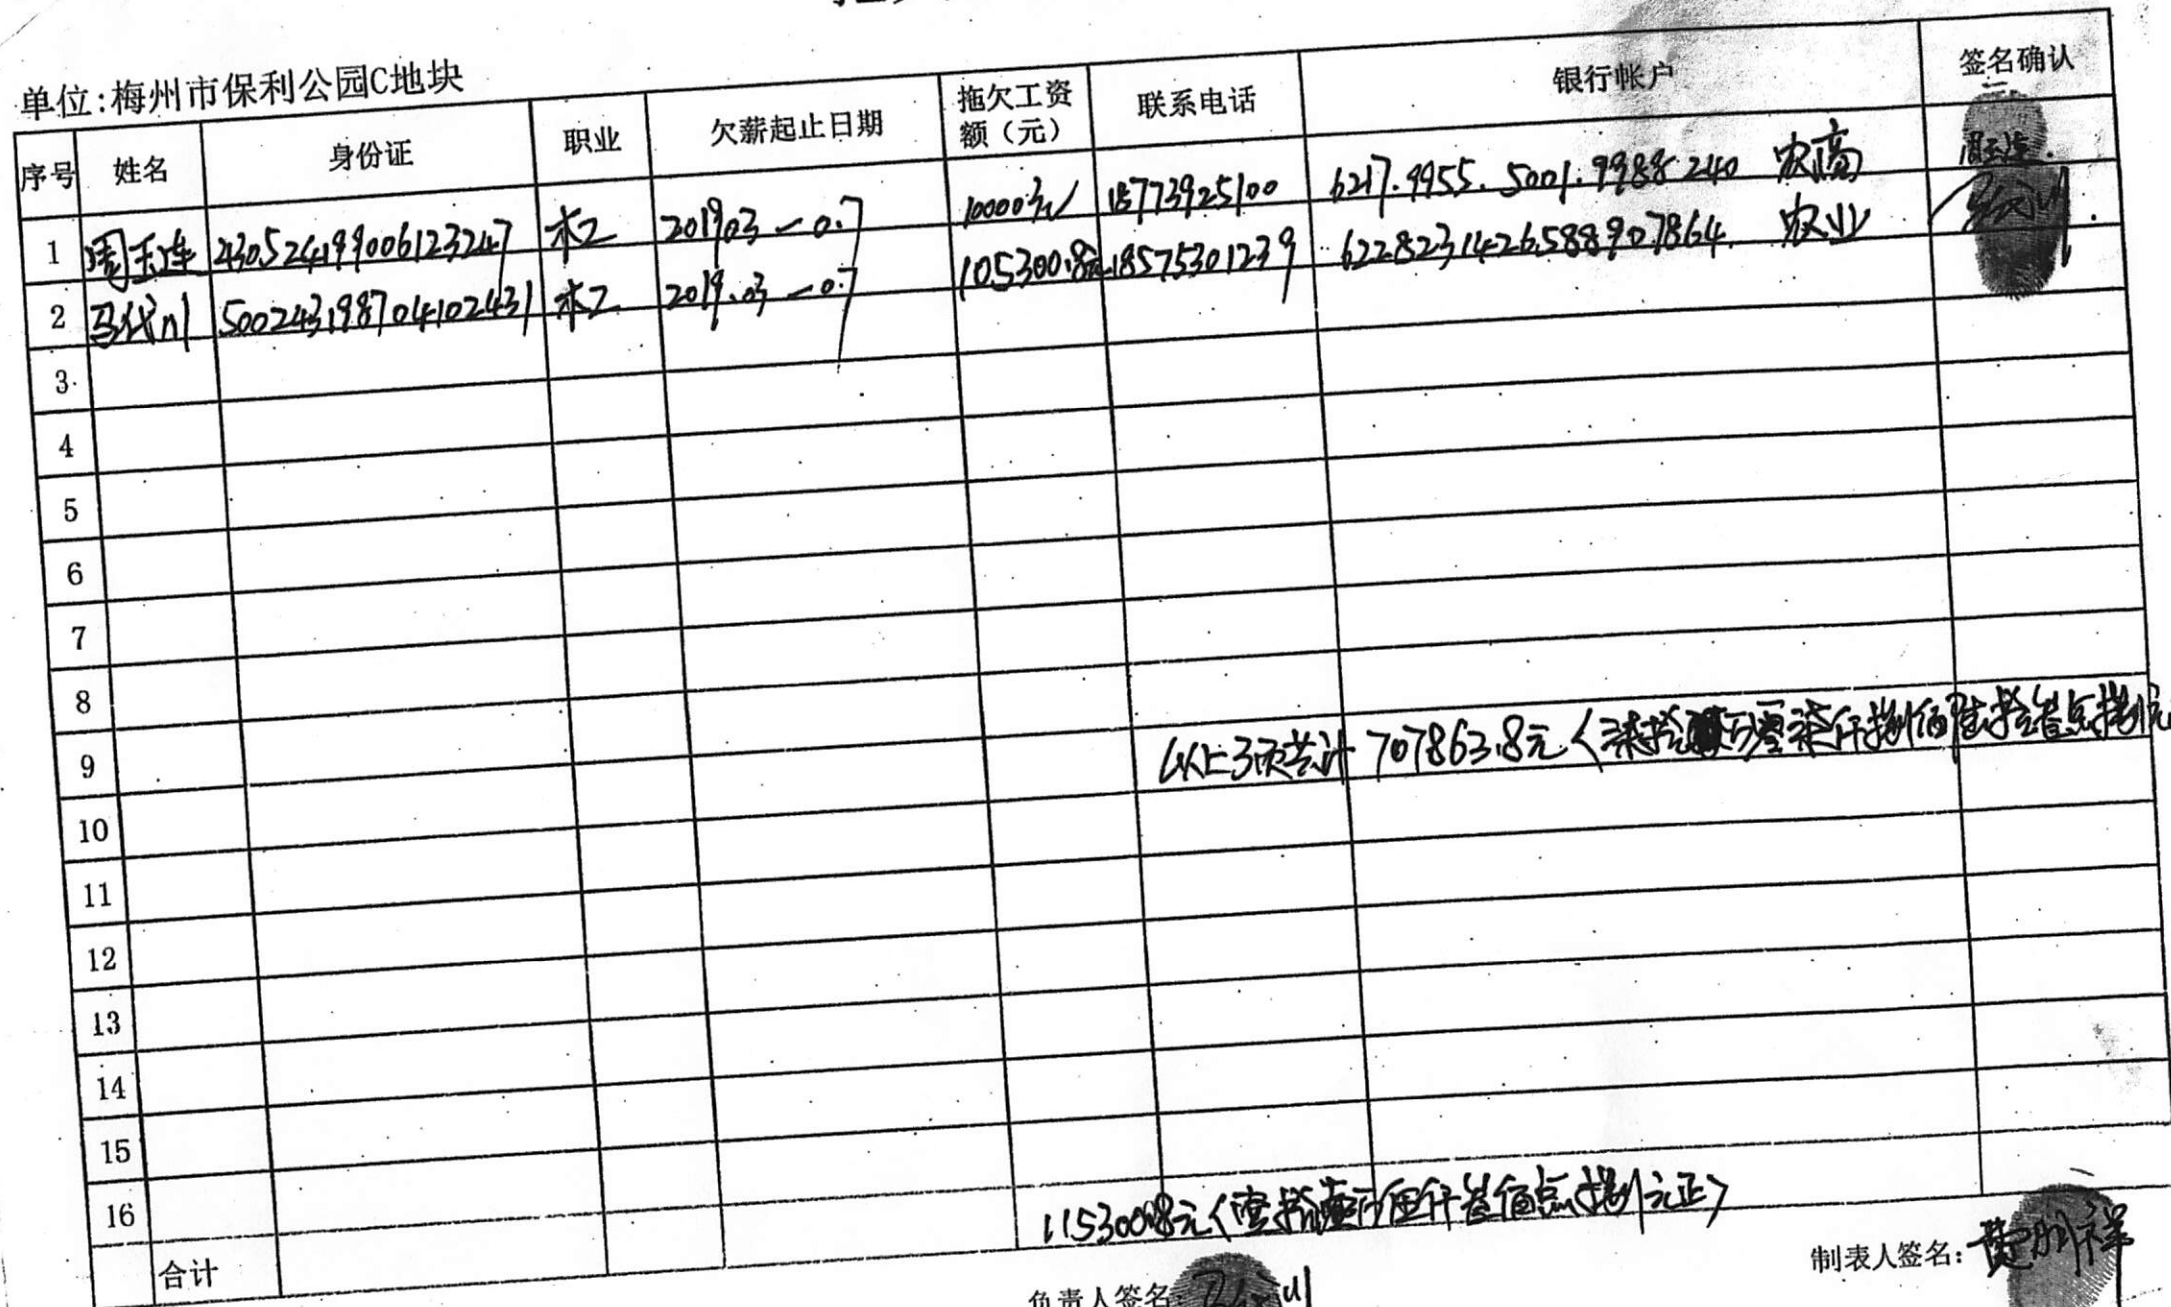 单位:梅州市保利公园C地块
序号 姓名 身份证 职业 欠薪起止日期 拖欠工资额（元） 联系电话 银行帐户 签名确认
1 周玉连 430524199006123247 木工 201903-0.7 10000元 18773925100 6217.9955.5001.9988240 农商
2 马代川 500243198704102431 木工 2019.03-0.7 105300.8元 18575301239 6228231426588907864 农业
3
4
5
6
7
8
9 以上3页共计 707863.8元
10
11
12
13
14
15
16
合计 115300.8元
负责人签名:
制表人签名: